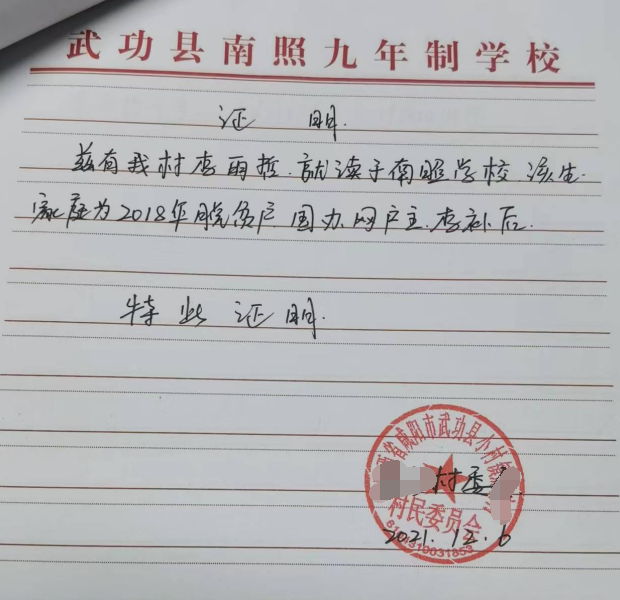 武功县南照九年制学校
证 明.
兹有我村李雨哲.就读于南照学校 该生.
家庭为2018年脱贫户.国办网户主.李补后.
特此证明.
省咸阳市武功县小村镇
村委
村民委员会
2021.12.6